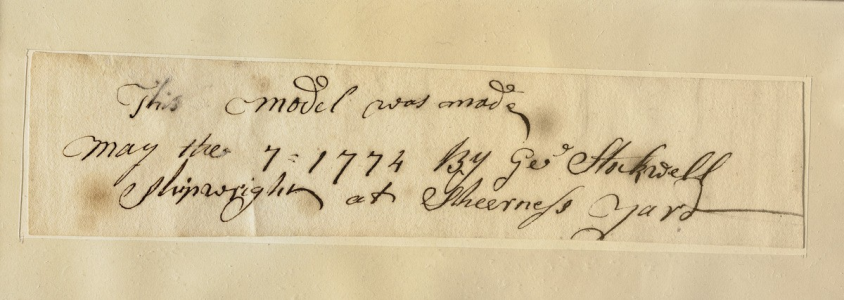 This model was made
May the 7=1774 By Geo.r Stockwell
Shipwright at Sheerness Yard